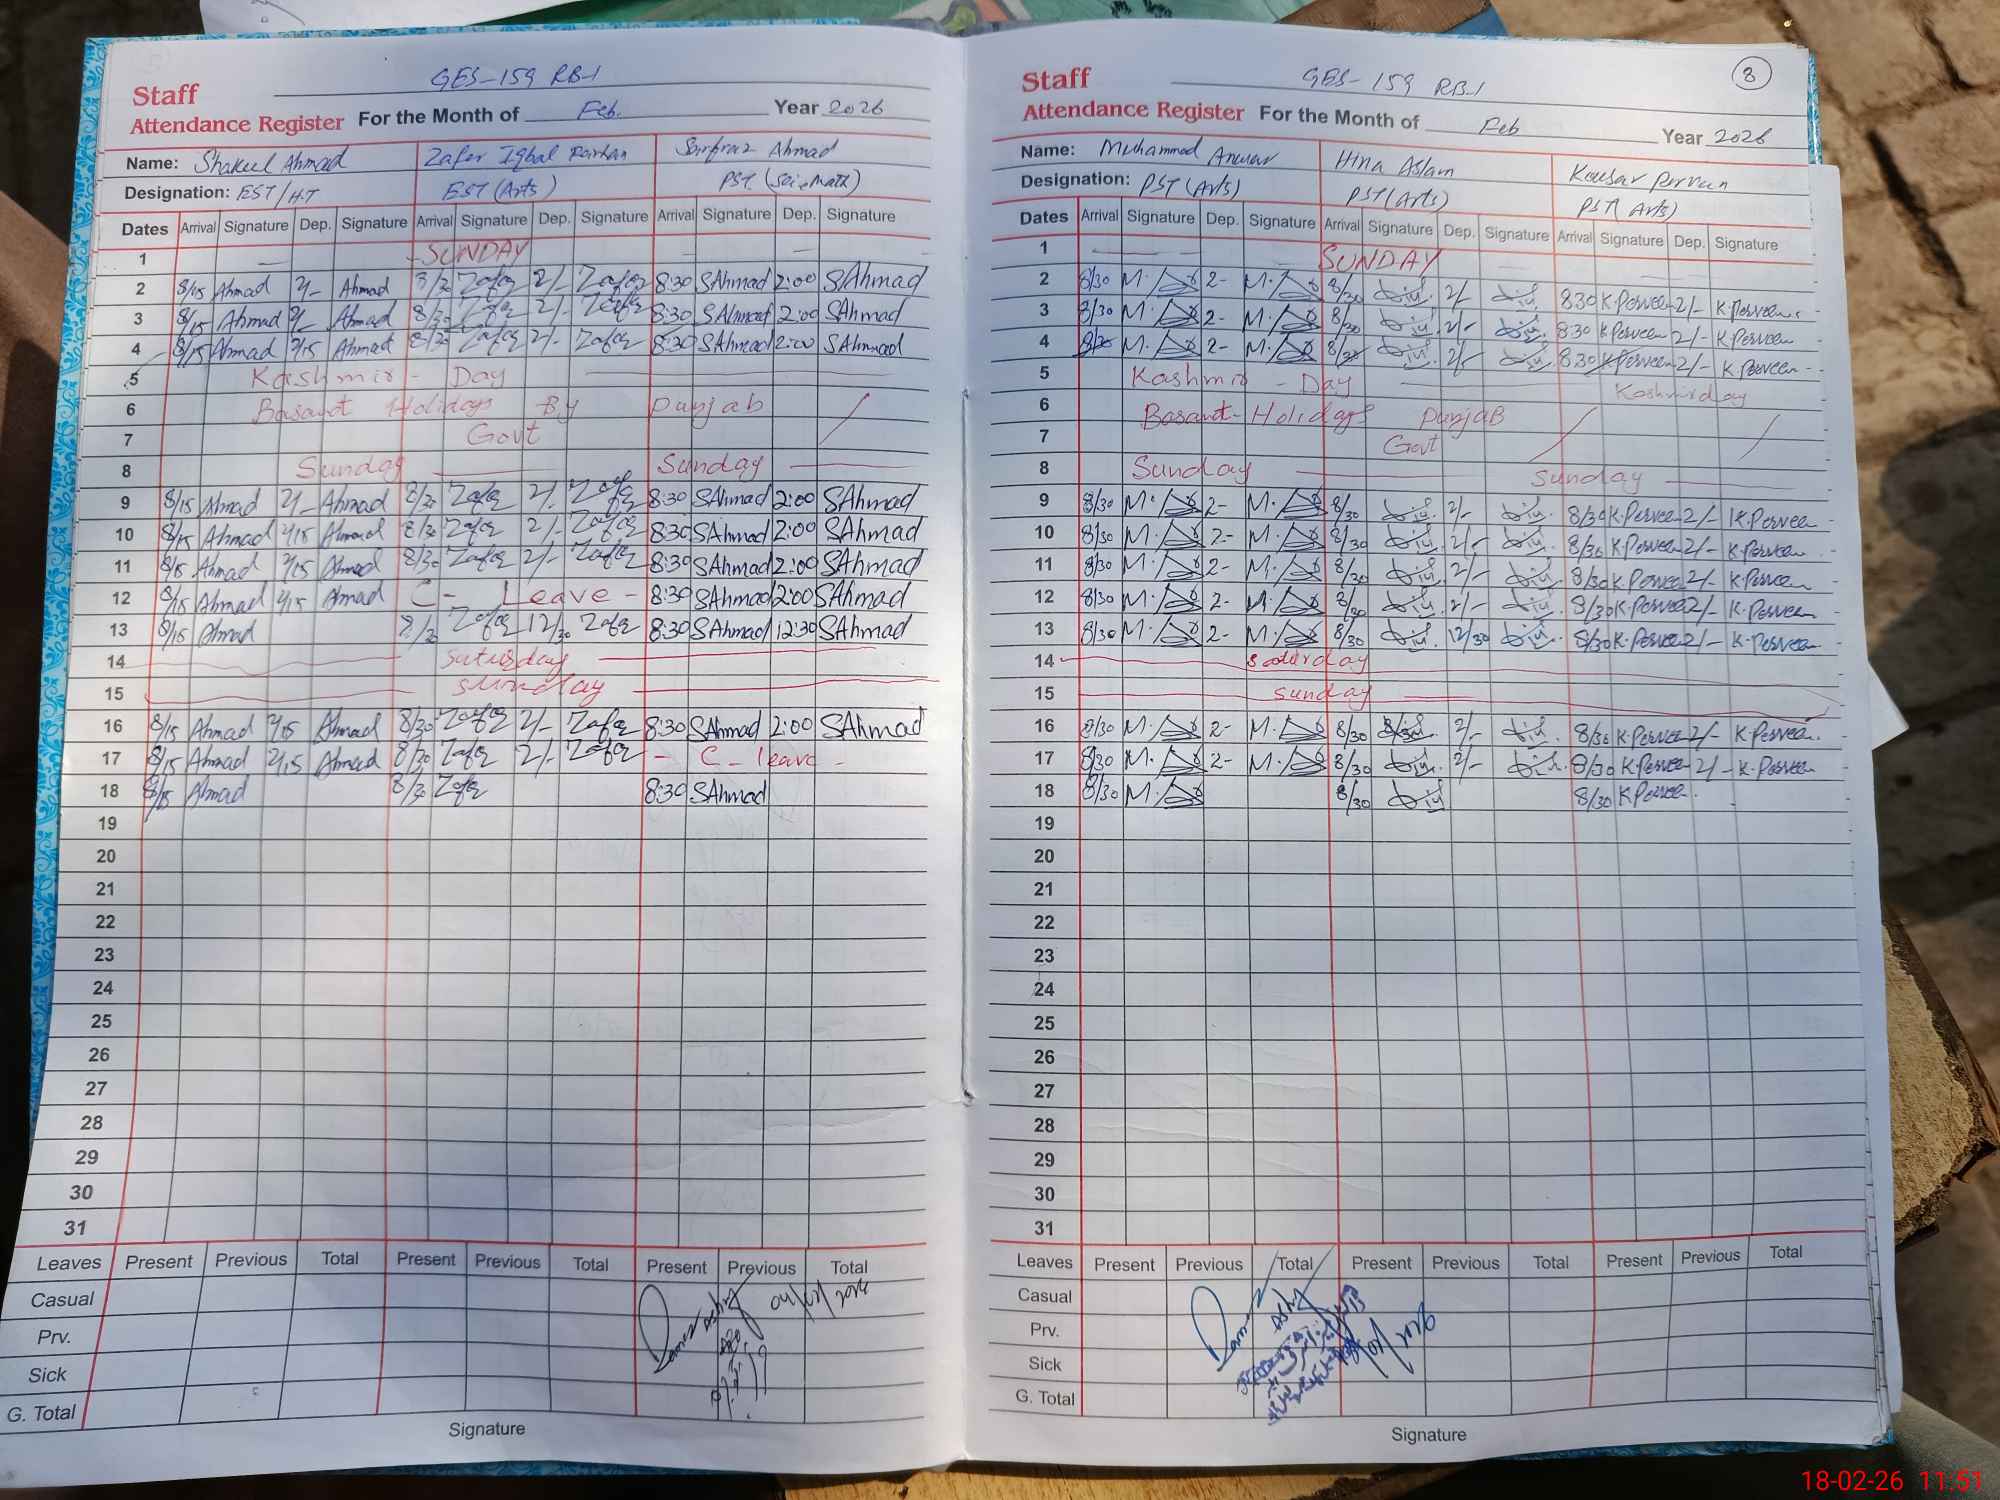 GES-159 RB-1
Staff
Attendance Register For the Month of Feb. Year 2026
Name: Shakeel Ahmad Zafar Iqbal Sarfraz Ahmad
Designation: EST/H.T EST (Arts) PST (Sci-Math)
Dates Arrival Signature Dep. Signature Arrival Signature Dep. Signature Arrival Signature Dep. Signature
1 SUNDAY
2 8/15 Ahmad 2/- Ahmad 8/30 Zafar 2/- Zafar 8:30 SAhmad 2:00 SAhmad
3 8/15 Ahmad 2/- Ahmad 8/30 Zafar 2/- Zafar 8:30 SAhmad 2:00 SAhmad
4 8/15 Ahmad 2/15 Ahmad 8/30 Zafar 2/- Zafar 8:30 SAhmad 2:00 SAhmad
5 Kashmir - Day
6 Basant Holidays By Punjab
7 Govt
8 Sunday Sunday
9 8/15 Ahmad 2/- Ahmad 8/30 Zafar 2/- Zafar 8:30 SAhmad 2:00 SAhmad
10 8/15 Ahmad 2/15 Ahmad 8/30 Zafar 2/- Zafar 8:30 SAhmad 2:00 SAhmad
11 8/15 Ahmad 2/15 Ahmad 8/30 Zafar 2/- Zafar 8:30 SAhmad 2:00 SAhmad
12 8/15 Ahmad 2/15 Ahmad C- Leave - 8:30 SAhmad 2:00 SAhmad
13 8/15 Ahmad 8/30 Zafar 12/30 Zafar 8:30 SAhmad 12:30 SAhmad
14 Saturday
15 Sunday
16 8/15 Ahmad 2/15 Ahmad 8/30 Zafar 2/- Zafar 8:30 SAhmad 2:00 SAhmad
17 8/15 Ahmad 2/15 Ahmad 8/30 Zafar 2/- Zafar - C - leave -
18 8/15 Ahmad 8/30 Zafar 8:30 SAhmad
19
20
21
22
23
24
25
26
27
28
29
30
31
Leaves Present Previous Total Present Previous Total Present Previous Total
Casual
Prv.
Sick
G. Total
Signature
8
GES-159 RB-1
Staff
Attendance Register For the Month of Feb Year 2026
Name: Muhammad Anwar Hina Aslam Kousar Perveen
Designation: PST (Arts) PST (Arts) PST (Arts)
Dates Arrival Signature Dep. Signature Arrival Signature Dep. Signature Arrival Signature Dep. Signature
1 SUNDAY
2 8/30 M. 2- M. 8/30 2/- 830 K.Perveen 2/- K.Perveen
3 8/30 M. 2- M. 8/30 2/- 8:30 K.Perveen 2/- K.Perveen
4 8/30 M. 2- M. 8/30 2/- 8:30 K.Perveen 2/- K.Perveen
5 Kashmir - Day Kashmir day
6 Basant - Holidays PunjaB
7 Govt
8 Sunday Sunday
9 8/30 M. 2- M. 8/30 2/- 8/30 K.Perveen 2/- K.Perveen
10 8/30 M. 2- M. 8/30 2/- 8/30 K.Perveen 2/- K.Perveen
11 8/30 M. 2- M. 8/30 2/- 8/30 K.Perveen 2/- K.Perveen
12 8/30 M. 2- M. 8/30 2/- 8/30 K.Perveen 2/- K.Perveen
13 8/30 M. 2- M. 8/30 12/30 8/30 K.Perveen 2/- K.Perveen
14 Saturday
15 Sunday
16 8/30 M. 2- M. 8/30 2/- 8/30 K.Perveen 2/- K.Perveen
17 8/30 M. 2- M. 8/30 2/- 8/30 K.Perveen 2/- K.Perveen
18 8/30 M. 8/30 8/30 K.Perveen
19
20
21
22
23
24
25
26
27
28
29
30
31
Leaves Present Previous Total Present Previous Total Present Previous Total
Casual
Prv.
Sick
G. Total
Signature
18-02-26 11:51